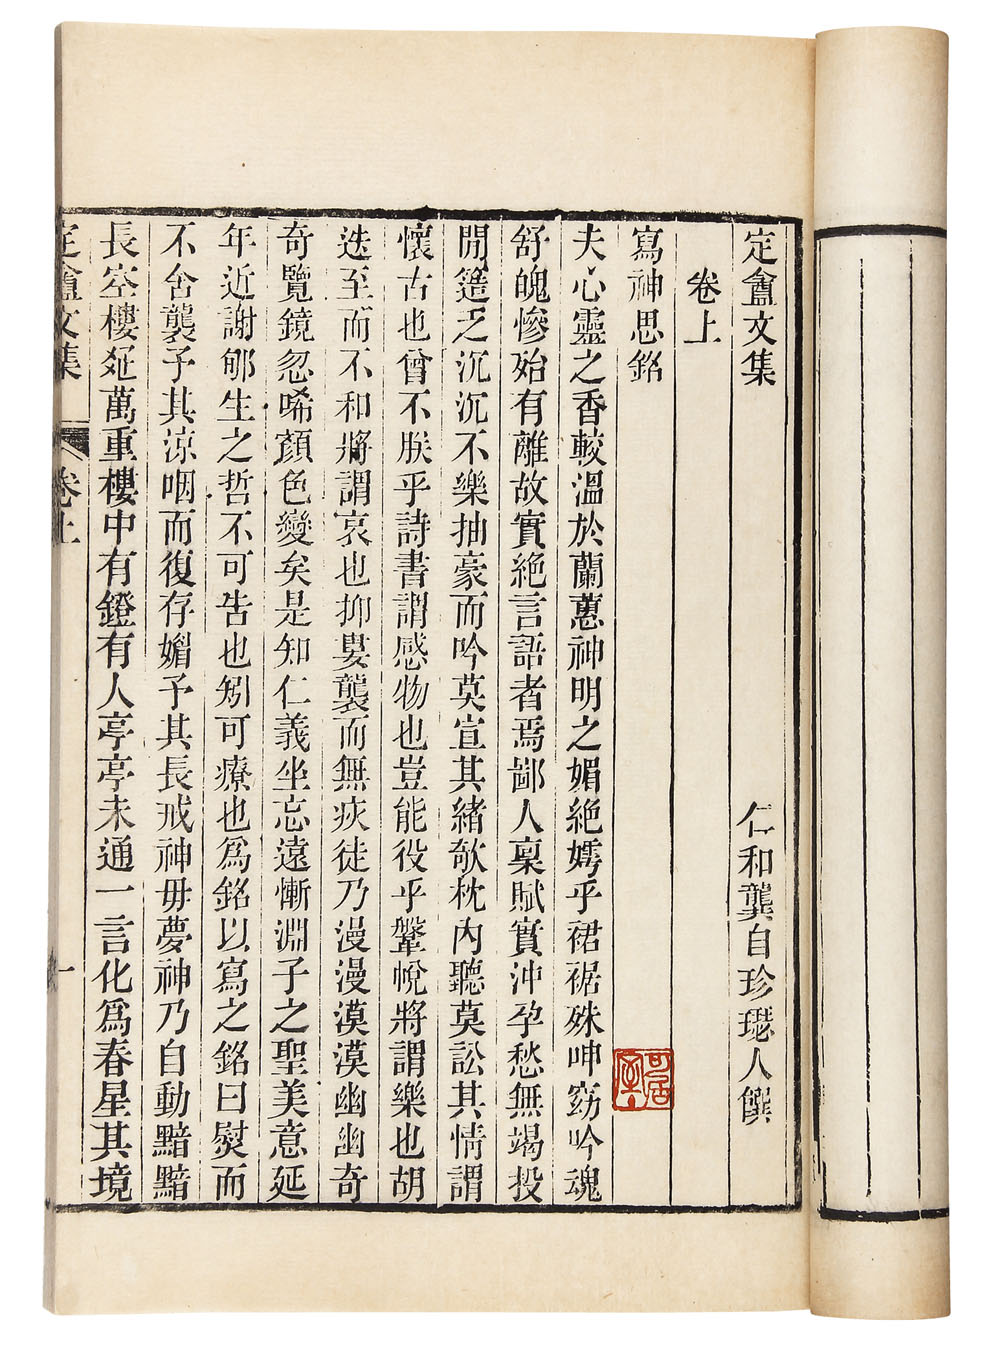 定盦文集
仁和龔自珍璱人饌
卷上
寫神思銘
夫心靈之香較溫於蘭蕙神明之媚絕嫮乎裙裾殊呻窈吟魂
舒魄慘殆有離故實絕言語者焉鄙人稟賦實沖孕愁無竭投
閒簉乏沉沉不樂抽豪而吟莫宣其緒欹枕內聽莫訟其情謂
懷古也曾不朕乎詩書謂感物也豈能役乎鞶帨將謂樂也胡
迭至而不和將謂哀也抑屢襲而無疢徒乃漫漫漠漠幽幽奇
奇覽鏡忽唏顏色變矣是知仁義坐忘遠慚淵子之聖美意延
年近謝郇生之哲不可告也矧可療也爲銘以寫之銘曰熨而
不舍襲予其涼咽而復存媚予其長戒神毋夢神乃自動黯黯
長空樓疑萬重樓中有鐙有人亭亭未通一言化爲春星其境
定盦文集
卷上
一